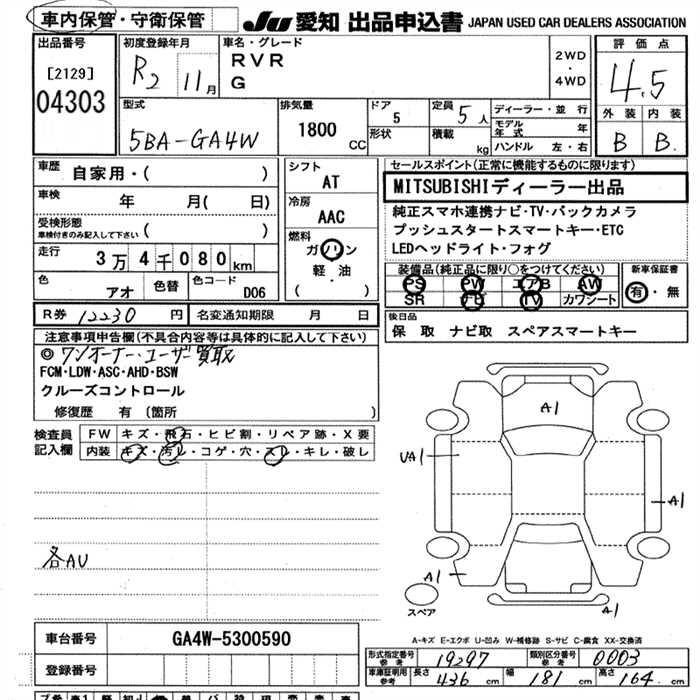 車内保管・守衛保管
JU 愛知 出品申込書 JAPAN USED CAR DEALERS ASSOCIATION
出品番号
[2129]
04303
初度登録年月
R2 11月
車名・グレード
RVR
G
2WD
・
4WD
評価点
4.5
外装 内装
B B.
型式
5BA-GA4W
排気量
1800 CC
ドア
5
形状
定員
5人
積載
kg
ディーラー・並行
モデル年式 年
ハンドル 左・右
車歴
自家用・( )
車検
年 月( 日)
受検形態
車検付きのみ記入して下さい ( )
走行
3万4千080km
色
アオ
色替
色コード
D06
シフト
AT
冷房
AAC
燃料
ガソリン
軽・油
( )
セールスポイント(正常に機能するものに限ります)
MITSUBISHIディーラー出品
純正スマホ連携ナビ・TV・バックカメラ
プッシュスタートスマートキー・ETC
LEDヘッドライト・フォグ
装備品(純正品に限り○をつけてください)
PS PW エアB AW
SR ナビ TV カワシート
新車保証書
有・無
R券 12230 円
名変通知期限 月 日
後日品
保 取 ナビ取 スペアスマートキー
注意事項申告欄(不具合内容等は具体的に記入して下さい)
◎ワンオーナー・ユーザー買取
FCM・LDW・ASC・AHD・BSW
クルーズコントロール
修復歴 有 (箇所 )
検査員記入欄
FW キズ・飛石・ヒビ割・リペア跡・X要
内装 キズ・汚レ・コゲ・穴・スレ・キレ・破レ
各AU
A1
UA1
A1
A1
A1
スペア
A-キズ E-エクボ U-凹み W-補修跡 S-サビ C-腐食 XX-交換済
車台番号 GA4W-5300590
登録番号
形式指定番号 参考 19297
類別区分番号 参考 0003
車庫証明用 参考 長さ 436 cm 幅 181 cm 高さ 164 cm